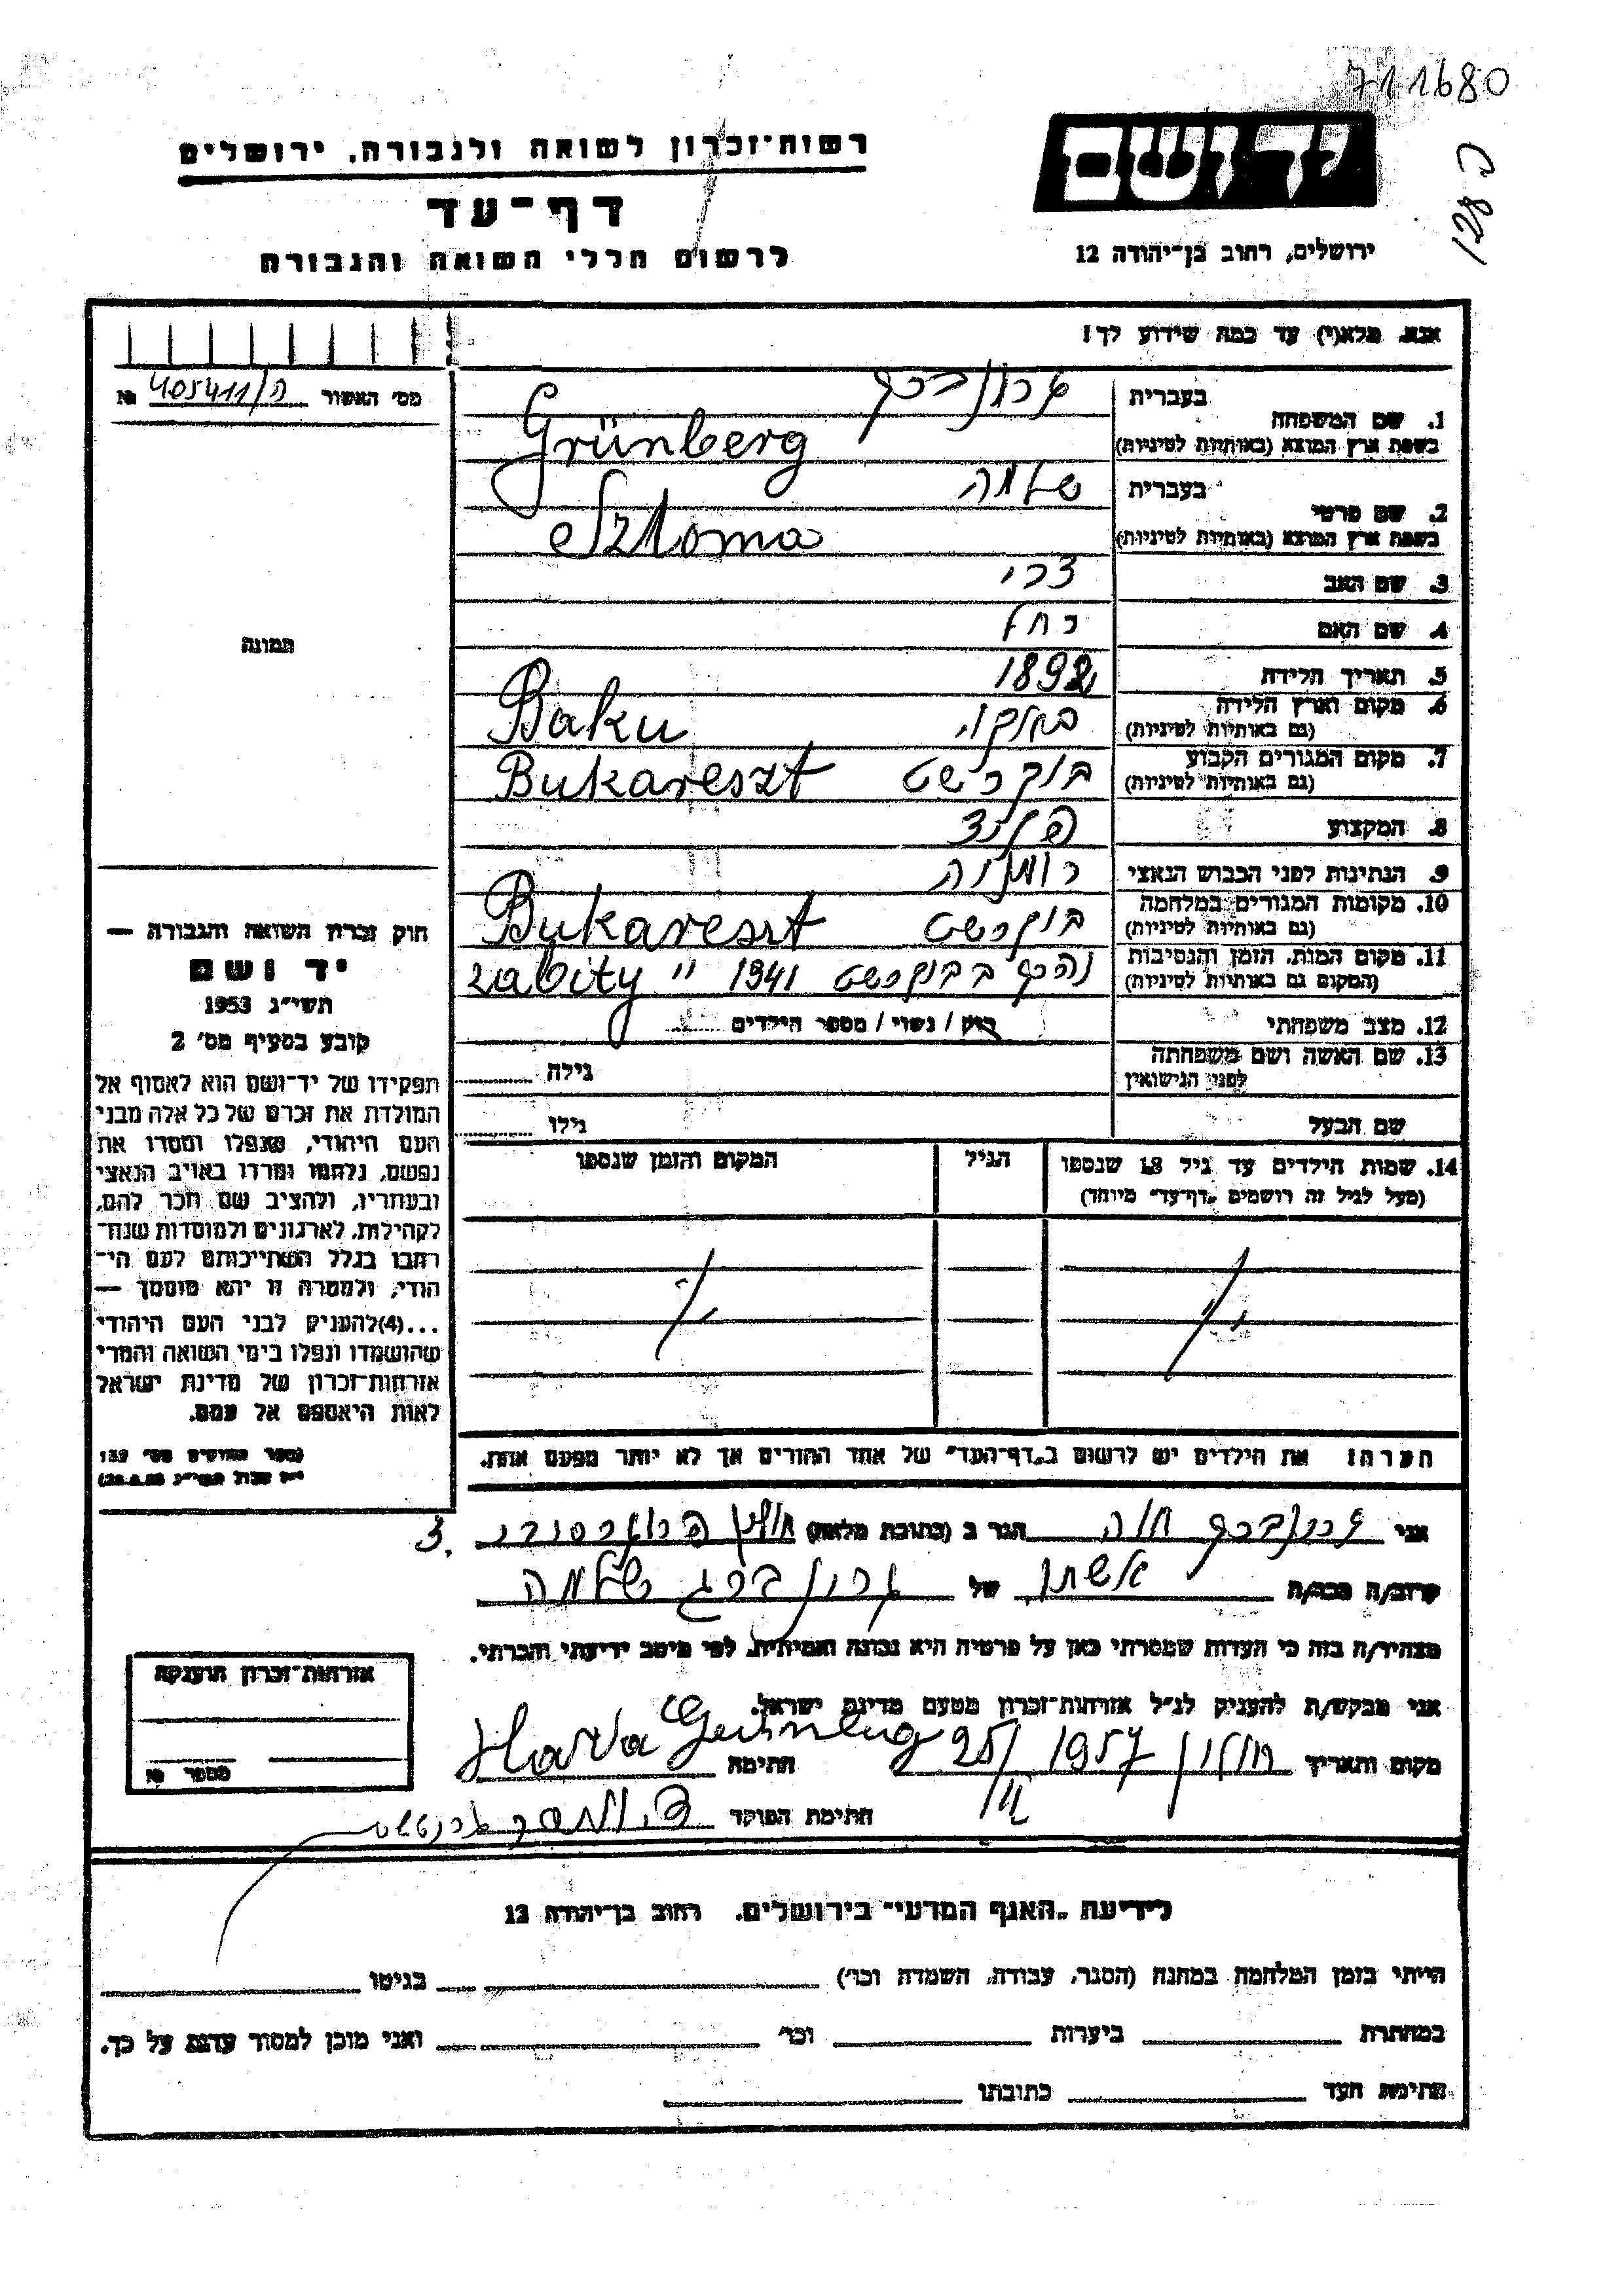 711680
יד ושם
רשות-זכרון לשואה ולגבורה, ירושלים
דף-עד
לרשום חללי השואה והגבורה
ירושלים, רחוב בן-יהודה 12
אנא, מלא(י) עד כמה שידוע לך!
מס' האשור 405411/ה №
1. שם המשפחה
בעברית גרונברג
בשפת ארץ המוצא (באותיות לטיניות) Grünberg
2. שם פרטי
בעברית שלמה
בשפת ארץ המוצא (באותיות לטיניות) Szloma
3. שם האב צבי
4. שם האם רחל
5. תאריך הלידה 1892
6. מקום וארץ הלידה
(גם באותיות לטיניות) Baku
7. מקום המגורים הקבוע בוקרשט
(גם באותיות לטיניות) Bukareszt
8. המקצוע
9. הנתינות לפני הכבוש הנאצי רומניה
10. מקומות המגורים במלחמה בוקרשט
(גם באותיות לטיניות) Bukareszt
11. מקום המות, הזמן והנסיבות נהרג בבוקרשט 1941 " zabity
(המקום גם באותיות לטיניות)
12. מצב משפחתי רווק / נשוי / מספר הילדים
13. שם האשה ושם משפחתה
לפני הנישואין
גילה
שם הבעל
גילו
תמונה
חוק זכרון השואה והגבורה —
יד ושם
תשי"ג 1953
קובע בסעיף מס' 2
תפקידו של יד-ושם הוא לאסוף אל
המולדת את זכרם של כל אלה מבני
העם היהודי, שנפלו ומסרו את
נפשם, נלחמו ומרדו באויב הנאצי
ובעוזריו, ולהציב שם וזכר להם,
לקהילות, לארגונים ולמוסדות שנח-
רבו בגלל השתייכותם לעם הי-
הודי, ולמטרה זו יהא מוסמך —
...(4) להעניק לבני העם היהודי
שהושמדו ונפלו בימי השואה והמרי
אזרחות-זכרון של מדינת ישראל
לאות היאספם אל עמם.
(ספר החוקים מס' 132
14. שמות הילדים עד גיל 18 שנספו
(מעל לגיל זה רושמים „דף-עד" מיוחד)
הגיל
המקום והזמן שנספו
הערה! את הילדים יש לרשום ב„דף-העד" של אחד ההורים אך לא יותר מפעם אחת.
אני גרונברג חוה הגר ב (כתובת מלאה) חולון 3.
קרוב/ה מכר/ה אשתו של גרונברג שלמה
מצהיר/ה בזה כי העדות שמסרתי כאן על פרטיה היא נכונה ואמיתית, לפי מיטב ידיעתי והכרתי.
אני מבקש/ת להעניק לנ"ל אזרחות-זכרון מטעם מדינת ישראל.
מקום ותאריך חולון 25/III 1957 חתימה Hava Grünberg
חתימת הפוקד
אזרחות-זכרון הוענקה
מספר №
לידיעת „האגף המדעי" בירושלים, רחוב בן-יהודה 12
הייתי בזמן המלחמה במחנה (הסגר, עבודה, השמדה וכו') בגיטו
במחתרת ביערות וכו' ואני מוכן למסור עדות על כך.
חתימת העד כתובתו